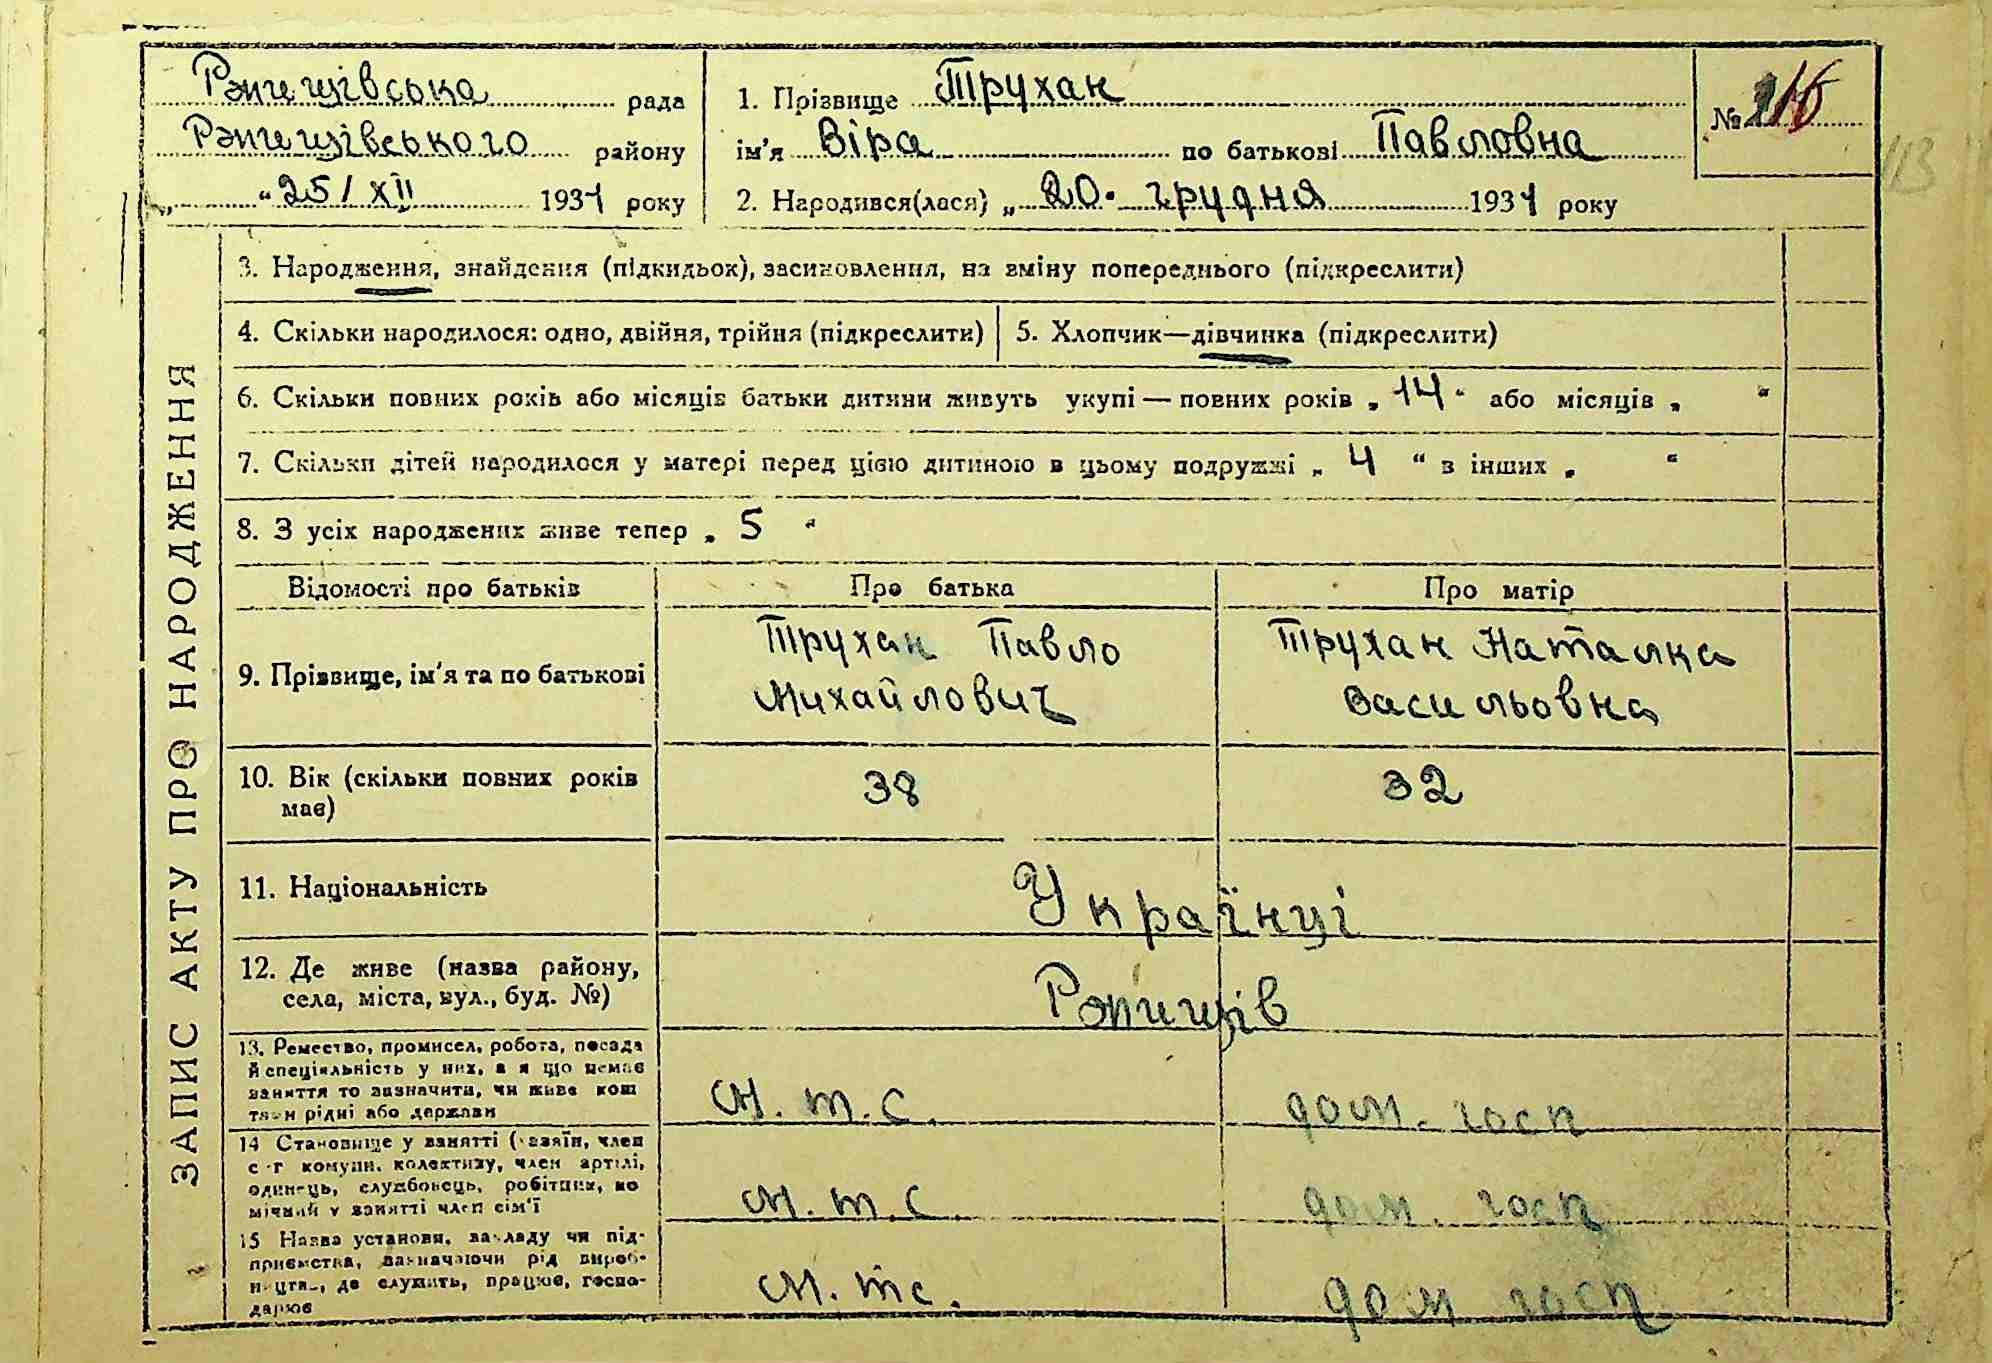 Рэпищівська рада
Рэпищівського району
„ “25/XII 1931 року
1. Прізвище Трухан
ім'я Віра по батькові Павловна
2. Народився(лася) „ 20. грудня 1931 року
№
113
ЗАПИС АКТУ ПРО НАРОДЖЕННЯ
3. Народження, знайдення (підкидьок), засиновлення, на зміну попереднього (підкреслити)
4. Скільки народилося: одно, двійня, трійня (підкреслити)
5. Хлопчик—дівчинка (підкреслити)
6. Скільки повних років або місяців батьки дитини живуть укупі — повних років „ 14 “ або місяців „ “
7. Скільки дітей народилося у матері перед цією дитиною в цьому подружжі „ 4 “ з інших „ “
8. З усіх народжених живе тепер „ 5 “
Відомості про батьків Про батька Про матір
9. Прізвище, ім'я та по батькові
Трухан Павло
Михайлович
Трухан Наталка
Васильовна
10. Вік (скільки повних років
має)
38
32
11. Національність
Українці
12. Де живе (назва району,
села, міста, вул., буд. №)
Рэпищів
13. Ремество, промисел, робота, посада
й спеціяльність у них, а я що немає
заняття то зазначити, чи живе кош
тами рідні або держави
М. т. с.
дом. госп
14 Становище у занятті (хазяїн, член
с-г комуни, колективу, член артілі,
одинець, службовець, робітник, по
мічний у занятті член сім'ї
м. т. с.
дом. госп
15 Назва установи, закладу чи під-
приємства, зазначаючи рід вироб-
ництва, де служить, працює, госпо-
дарює
М. тс.
дом госп